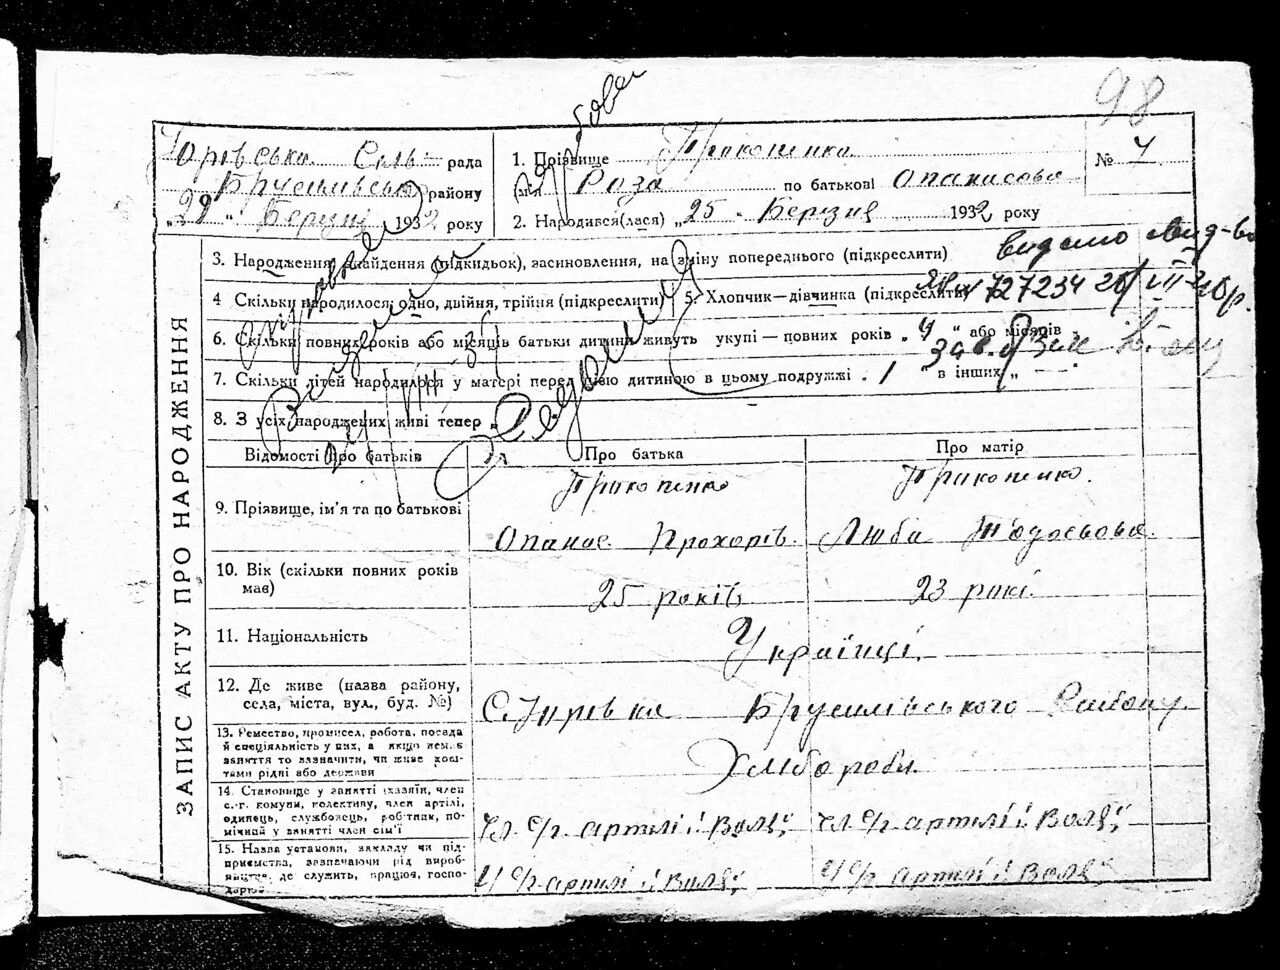 98
Юрівська Сіль- рада
Брусилівськ району
„29 " Березня 1932 року
1. Прізвище Прокопенко
(ім'я Роза по батькові Опанасова
2. Народився(лася) „25 " Березня 1932 року
№ 7
ЗАПИС АКТУ ПРО НАРОДЖЕННЯ
3. Народження, знайдення (підкидьок), засиновлення, на зміну попереднього (підкреслити)
видано
4 Скільки народилося: одно, двійня, трійня (підкреслити)
5. Хлопчик—дівчинка (підкреслити)
727234 26/VII-40р.
6. Скільки повних років або місяців батьки дитини живуть укупі — повних років „4 " або місяців
7. Скільки дітей народилося у матері перед цією дитиною в цьому подружжі . 1 " в інших „ —
8. З усіх народжених живі тепер „
Відомості про батьків
Про батька
Про матір
9. Прізвище, ім'я та по батькові
Прокопенко
Опанас Прохорів.
Прокопенко.
Люба Тодосьова.
10. Вік (скільки повних років мав)
25 років
23 рокі
11. Національність
Українці.
12. Де живе (назва району, села, міста, вул., буд. №)
С. Юрівка Брусилівського Району.
13. Ремество, промисел, робота, посада й спеціяльність у них, а якщо немає заняття то зазначити, чи живе коштами рідні або держави
Хлібороби.
14. Становище у занятті (хазяїн, член с.-г. комуни, колективу, член артілі, одинець, службовець, робітник, помічний у занятті член сім'ї
Чл. С/г. артилі „Воля"
Чл. С/г. артилі „Воля"
15. Назва установи, закладу чи підприємства, зазначаючи рід виробництва, де служить, працює, господарює
У С/г артилі „Воля"
У С/г артилі „Воля"